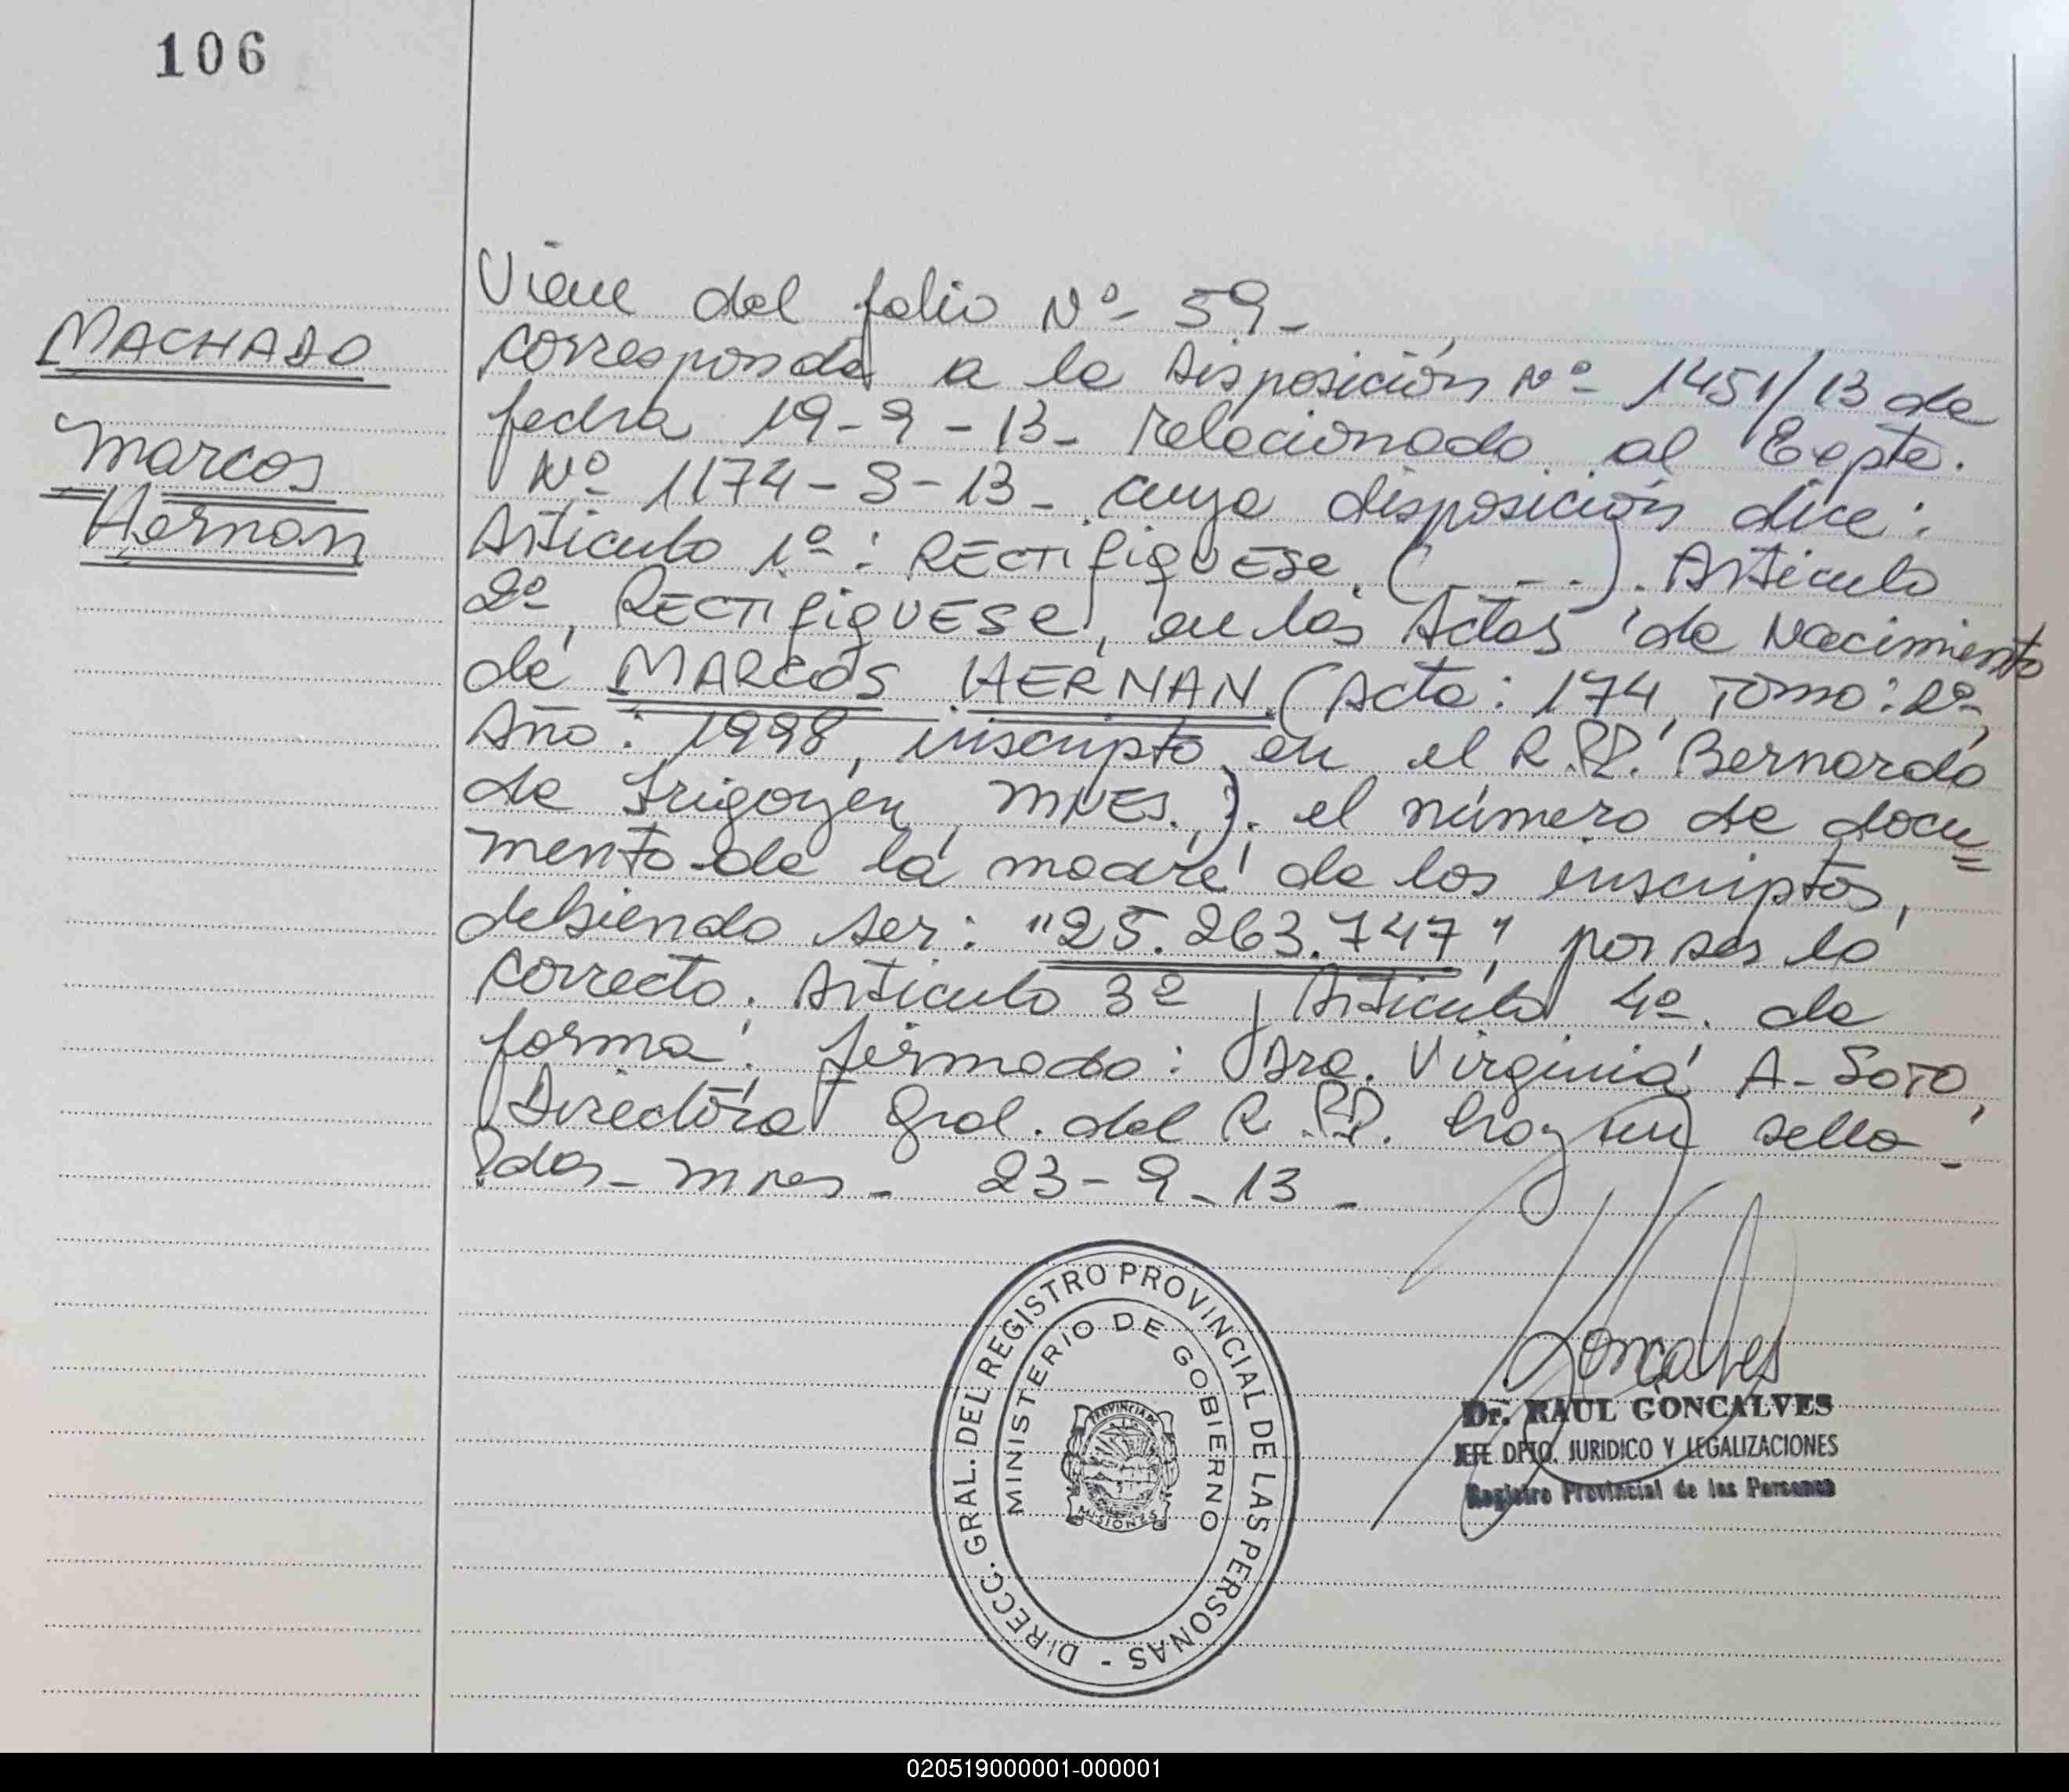 106
MACHADO
Marcos
Hernan
Viene del folio Nº- 59-
corresponde a la Disposición Nº- 1451/13 de
fecha 19-9-13- relacionado al Expte.
Nº 1174-S-13- cuya disposición dice:
Articulo 1º: RECTIFIQUESE. (- - - -). Articulo
2º, RECTIFIQUESE, en las Actas de Nacimiento
de MARCOS HERNAN (Acta: 174, Tomo: 2º,
Año: 1998, inscripto en el R.P.P. Bernardo
de Irigoyen, MNES.). el número de docu=
mento de la madre de los inscriptos,
debiendo ser: "25.263.747", por ser lo
correcto. Articulo 3º y Articulo 4º. de
forma. firmado: Dra. Virginia A- SOTO,
Directora Gral. del R.P.P. hay un sello-
Pdas- mnes- 23-9-13-
DIRECC. GRAL. DEL REGISTRO PROVINCIAL DE LAS PERSONAS -
MINISTERIO DE GOBIERNO
PROVINCIA DE
MISIONES
Goncalves
Dr. RAUL GONCALVES
JEFE DPTO. JURIDICO Y LEGALIZACIONES
Registro Provincial de las Personas
020519000001-000001